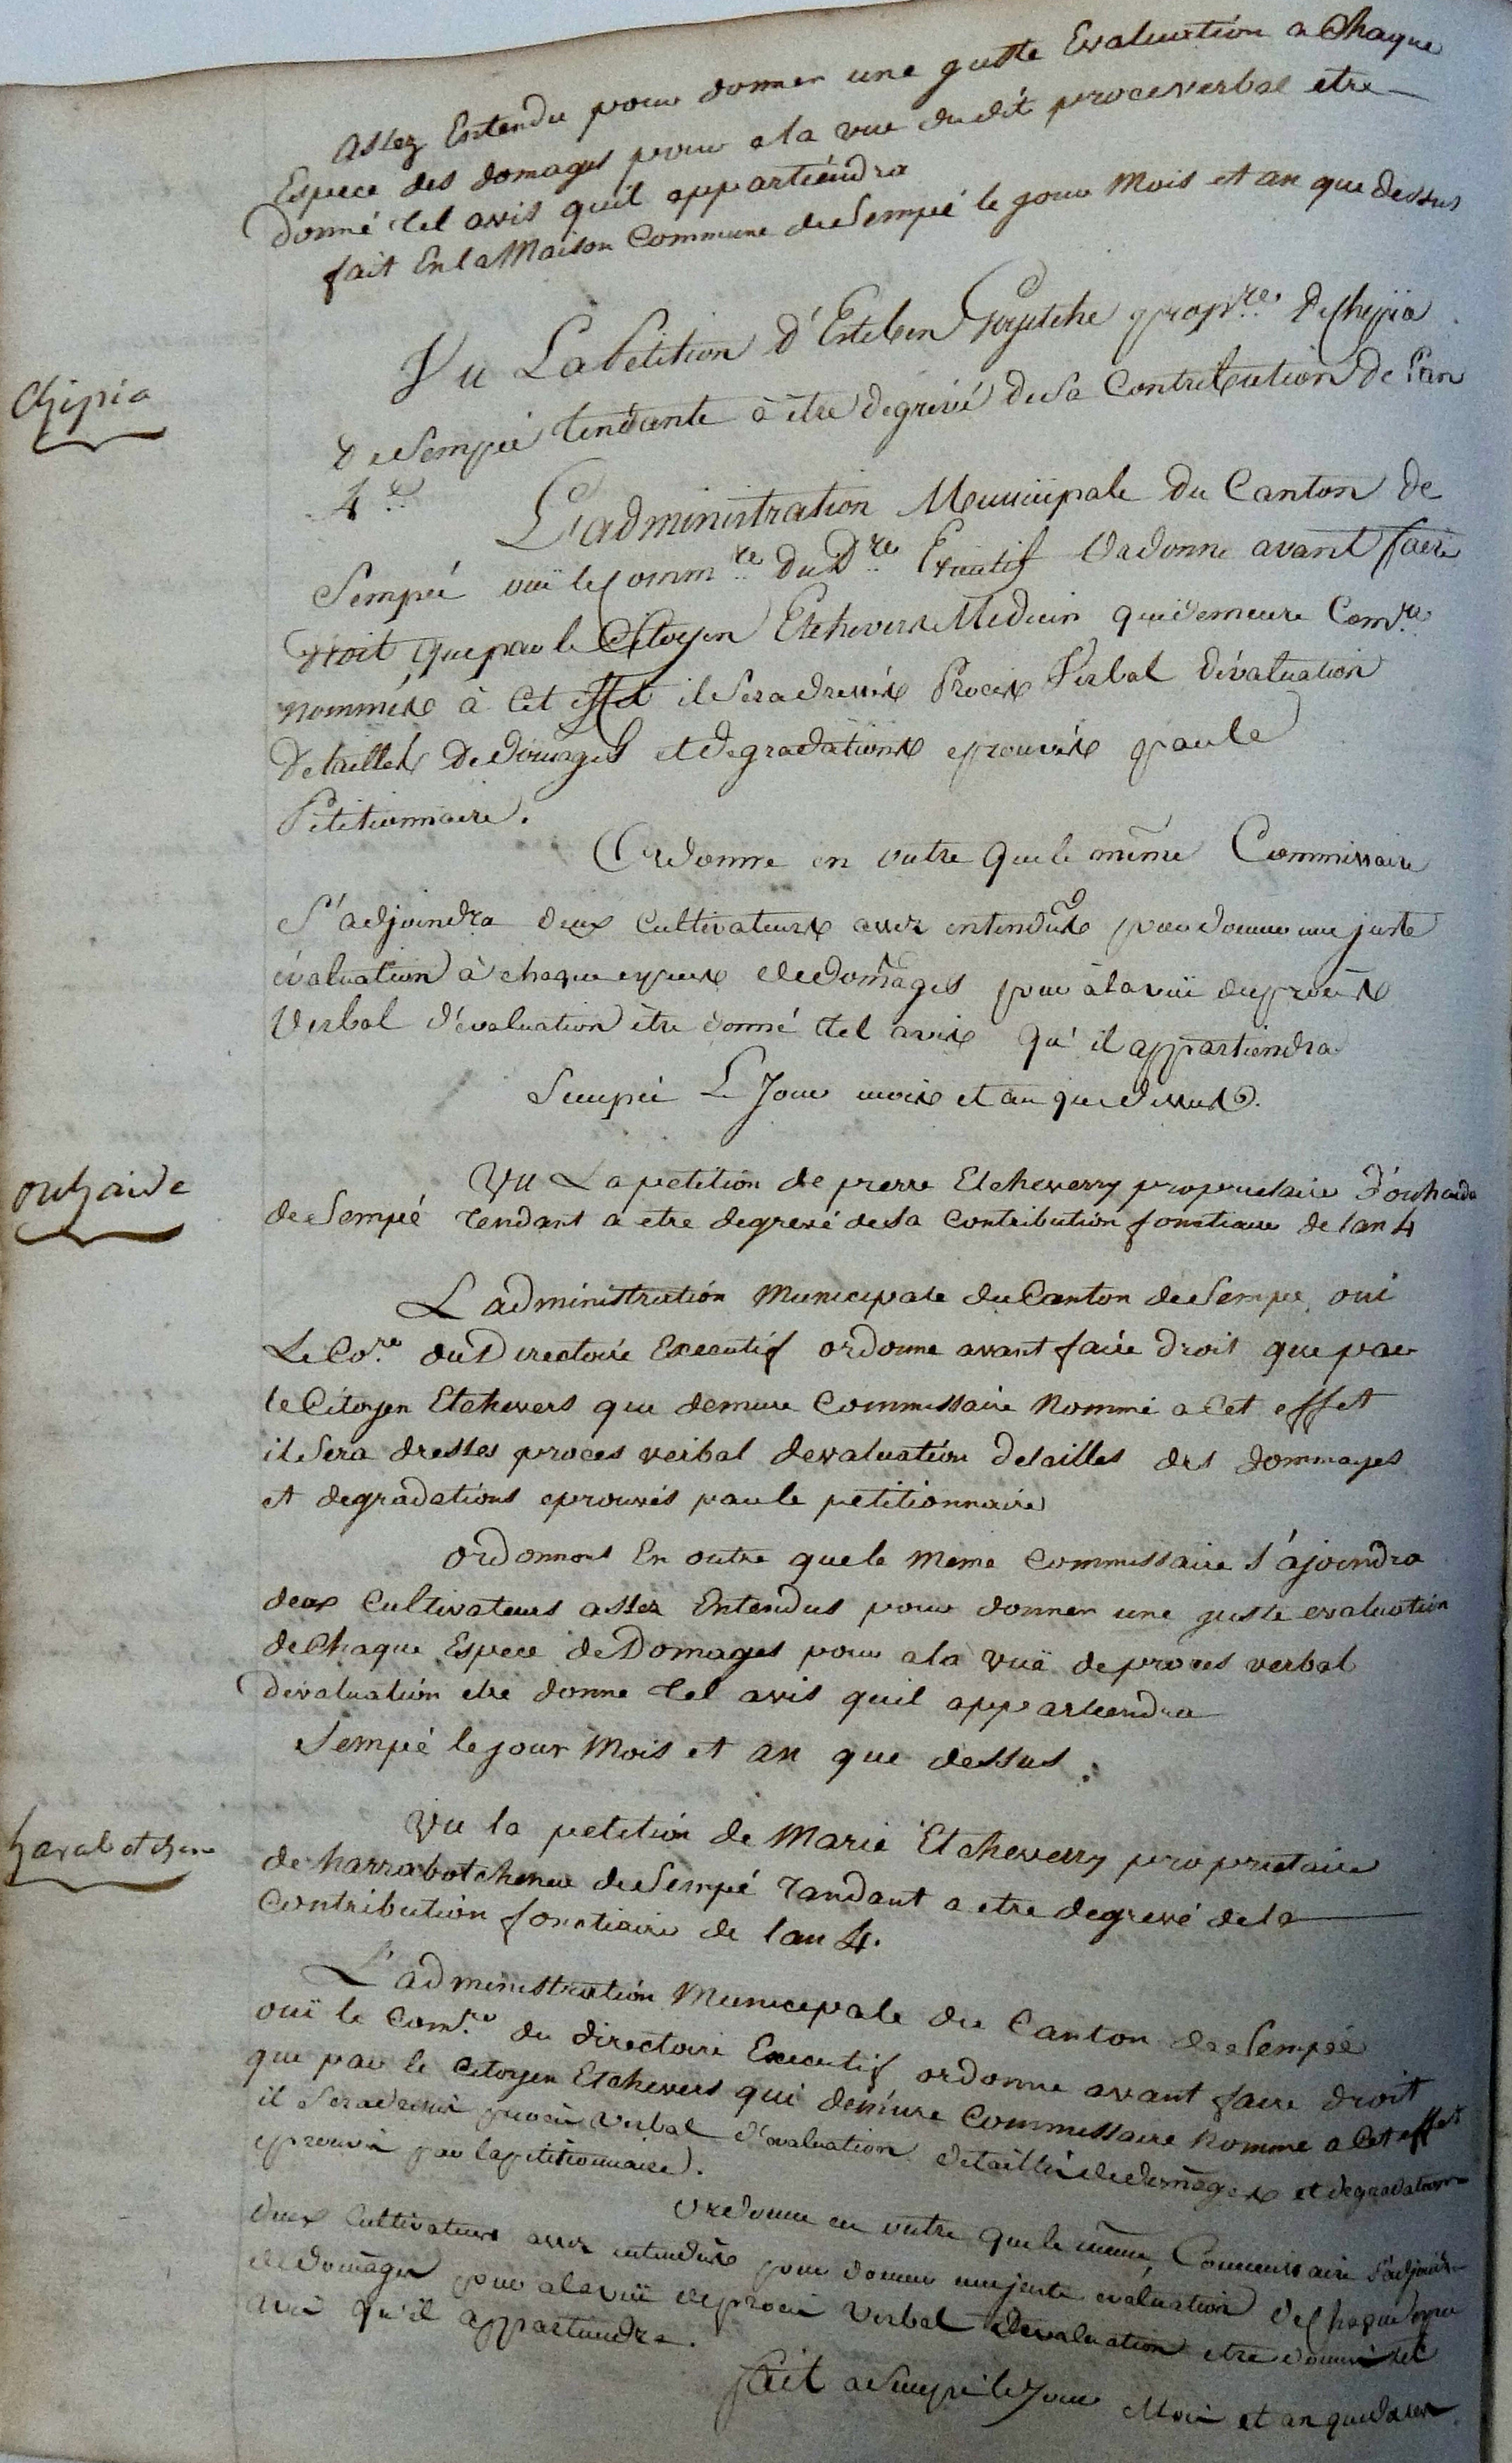 assez Entendu pour donner une guste Evaluation a Chaque
Espece des domages pour ala vue du dit proceverbal etre
donné tel avis quil appartiéndra
fait En la Maison Commune de Sempé le jour Mois et an que dessus
Chipia
Vu La Pétition d'Esteben propre. De Chipia
De Sempé tendante à être degrévé de Sa Contribution De l'an
4e.
L'administration Municipale Du Canton De
Sempé ouï le Commre du Dre Exécutif Ordonne avant faire
Droit que par le Citoyen Etchevers Medecin qui demeure Comre
nommée à Cet effet il Sera dressée Procès Verbal D'évaluation
Détaillés De Domages et Degradations eprouvés par le
Petitionnaire.
Ordonne en outre que le même Commissaire
S'adjoindra deux Cultivateurs assez entendus pour donner une juste
évaluation à chaque espece de domages pour à la vuë du procès
Verbal d'évaluation être donné tel avis qu'il appartiendra
Sempé Le Jour mois et an que dessus.
ouhaide
Vu La petition de pierre Etcheverry proprietaire D'ouhaide
de Sempé tendant a etre degrevé de Sa Contribution fonctiaire de lan 4
L administratión Municipale du Canton de Sempé oui
Le Core. du Directoire Executif ordonne avant faire droit que par
le Citoyen Etchevers que demure Commissaire Nommé a Cet effet
il Sera dresses proces verbal devaluatión detailles des dommages
et degradations eprouvés par le petitionnaire
ordonnons En outre que le Meme Commissaire s'ajoindra
deux Cultivateurs assez Entendus pour donner une guste evaluation
de Chaque Espece de Domages pour ala vuë de proces verbal
devaluatión etre donne tel avis quil appartiendra
Sempé le jour Mois et an que dessus.
Vu la petitión de Marie Etcheverry proprietaire
de harrabotchenea de Sempé tandant a etre degrevé de la
Contribution fonctiaire de lan 4.
L'administratión Municipale du Canton de Sempée
ouï le Comre. du directoire Executif ordonne avant faire droit
que par le Citoyen Etchevers qui demure Commissaire Nomme a Cet effet
il Sera dressé procès verbal d'évaluation detaillés de domages et degradations
eprouvés par la petitionnaire.
Ordonne en outre que le même Commissaire S'adjoindra
deux Cultivateurs assez entendus pour donner une juste evaluation de Chaque espece
de domages pour a la vuë de procès Verbal D'evaluation etre donné tel
avis qu'il appartiendra.
fait a Sempé le Jour Mois et an que dessus